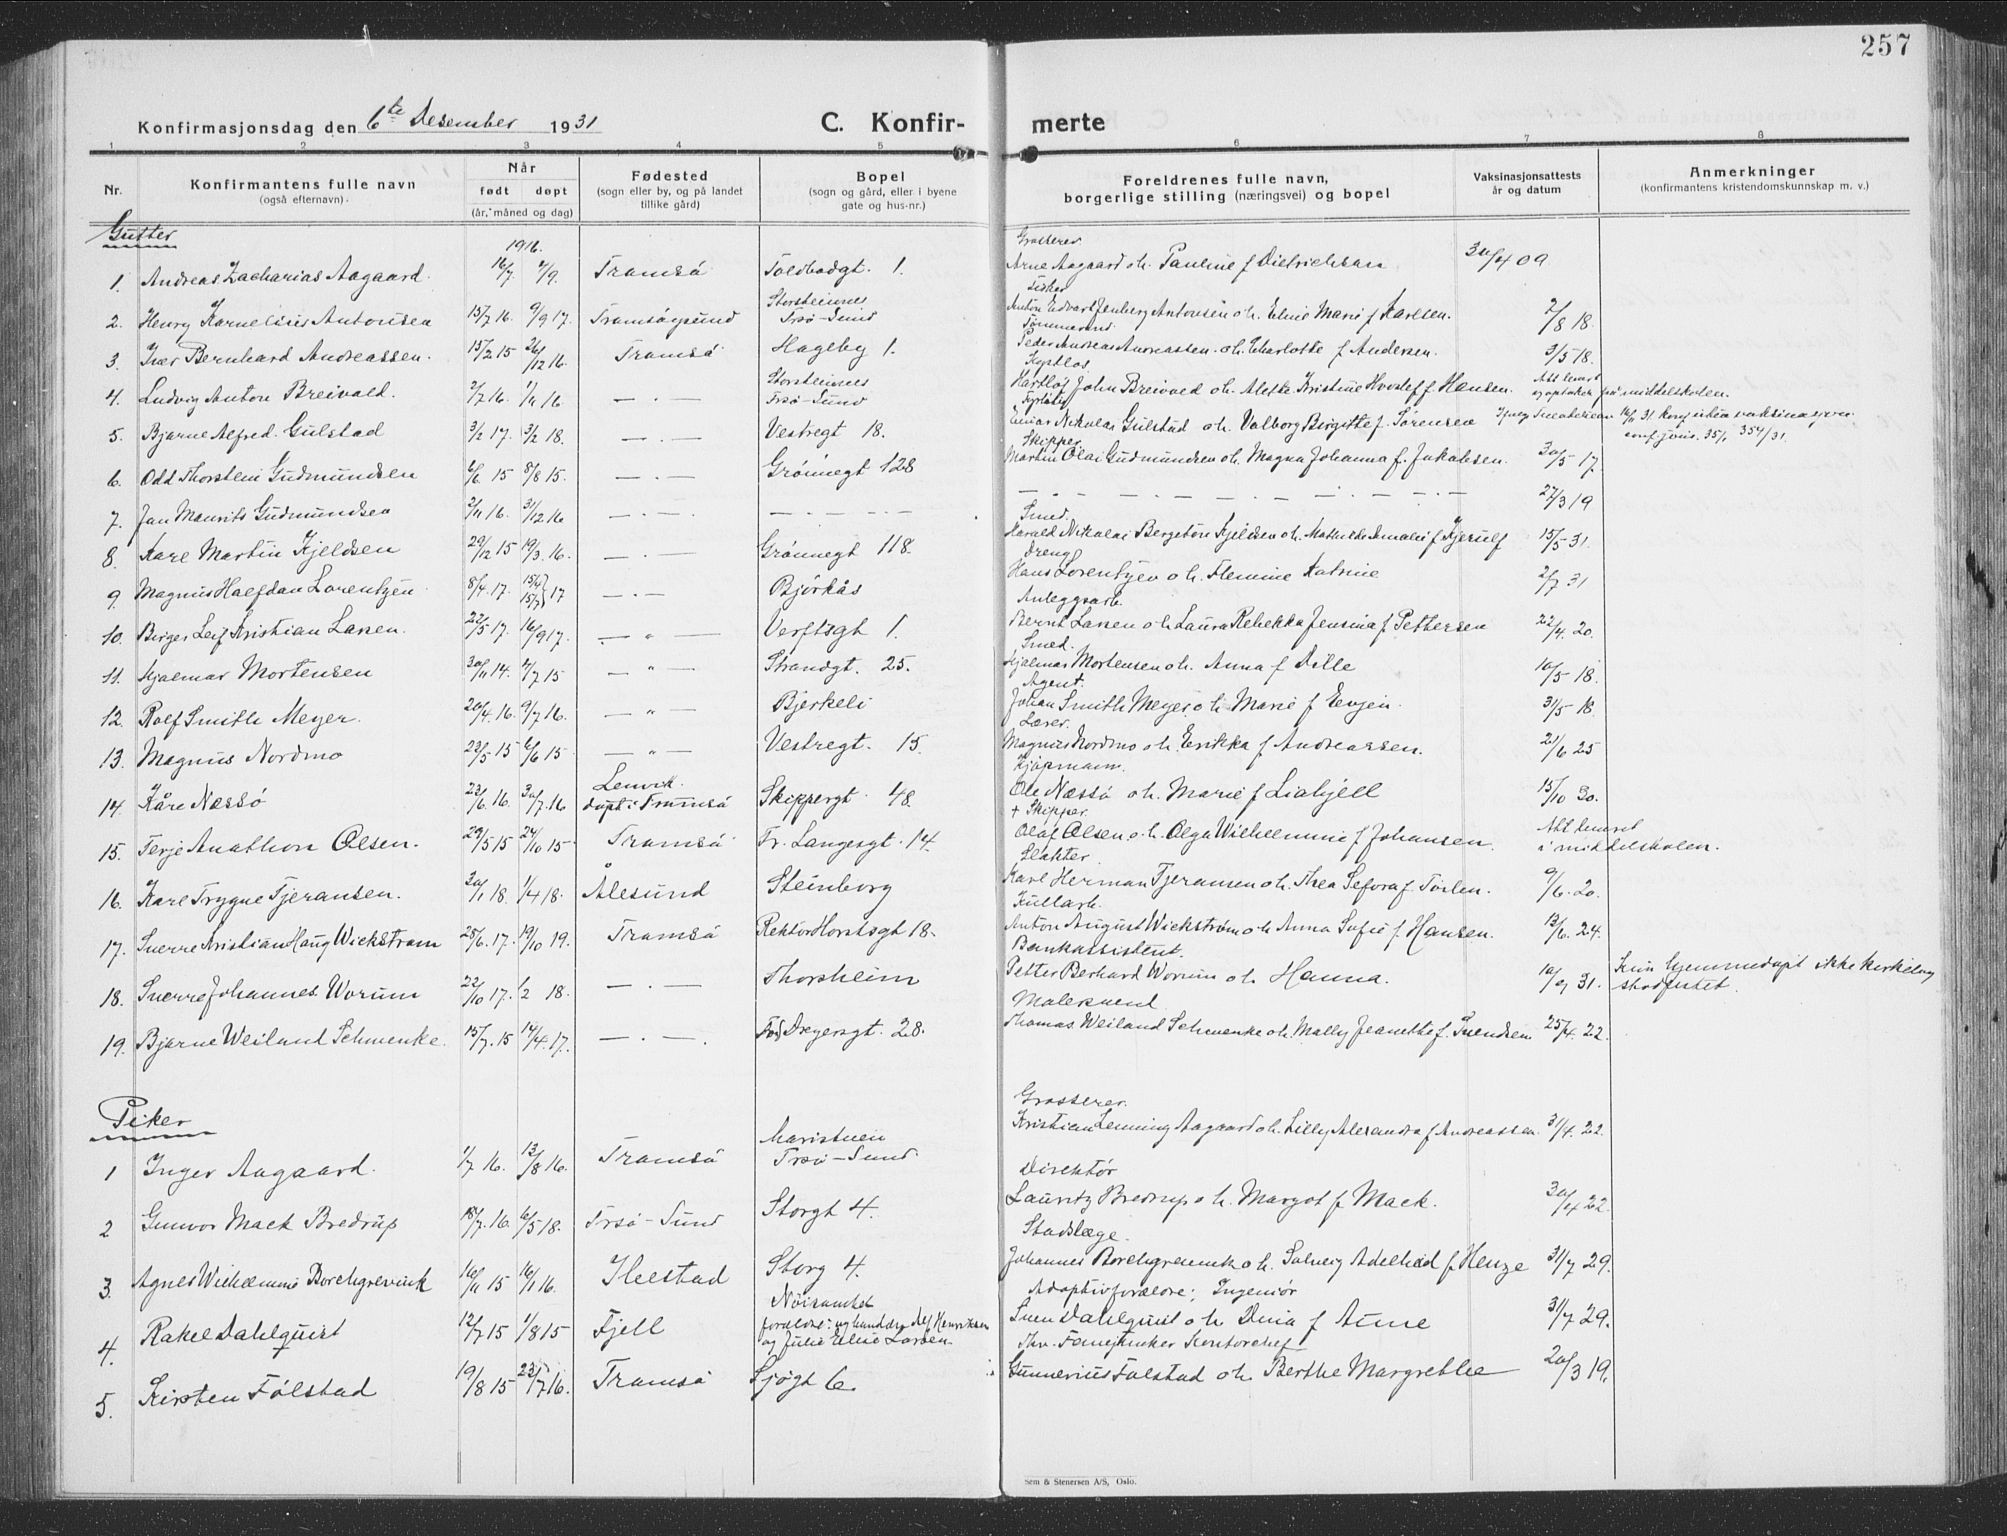 257
Konfirmasjonsdag den 6te Desember 1931 C. Konfir- merte
1 2 3 4 5 6 7 8
Nr. Konfirmantens fulle navn (også efternavn). Når født døpt (år, måned og dag) Fødested (sogn eller by, og på landet tillike gård) Bopel (sogn og gård, eller i byene gate og hus-nr.) Foreldrenes fulle navn, borgerlige stilling (næringsvei) og bopel Vaksinasjonsattests år og datum Anmerkninger (konfirmantens kristendomskunnskap m. v.)
Gutter
1916.
Grosserer
1. Andreas Zacharias Aagaard. 16/7 /9. Tromsö Toldbodgt. 1. Arne Aagaard o h. Pauline f Dietrichson 30/4 09
Fisker
Storsteinnes
2. Henry Kornelius Antonsen 15/7 16. 9/9 17. Tromsöysund Trsö-Sund Anton Edvart Jenberg Antonsen o h. Marie f Karlsen. 2/8 18.
Tömmermd.
3. Ivar Bernhard Andreassen. 15/2 15 26/12 16. Tromsö Hageby 1. Peder Andreas Andreassen o h. Charlotte f Andersen. 3/5 18.
Storsteinnes
4. Ludvig Anton Breivold. 2/7 16. 1/11 16 — . — Trsö-Sund Hartløf John Breivold o h. Aletta Kristine f Hansen. Att levert og optaket på middelskolen.
5. Bjarne Alfred Gulstad 3/2 17. 3/2 18. — . — Vestregt 18. Einar Nikolai Gulstad o h. Valborg Birgitte f. Sörensen
Skipper
6. Odd Thorstein Gudmundsen 6/6. 15 8/8 15. — . — Grönnegt 128 Martin Olai Gudmundsen o h. Magna Johanna f. Jakobsen. 30/5 17.
7. Jan Maurits Gudmundsen 2/11 16. 31/12 16 — . — — . — . — — . — . — 27/3 19
Smed.
8. Karl Martin Kjeldsen 29/12 15 19/3. 16. — . — Grönnegt 118. Harald Nikolai Bergeton Kjeldsen o h. Mathilde Amalie f Kjerulf 15/5 31.
Dreng
9. Magnus Halfdan Lorentzen 8/4 17. 15/4 15/7 17 — . — Björkås Hans Lorentzen o h. Flemine Katrine 2/7 31
Anleggsarb.
10. Birger Leif Kristian Larsen. 22/5 17. 16/9 17. — " — Verftsgt 1. Bernt Larsen o h Laura Rebekka Jensina f Pettersen 22/4. 20.
Smed.
11. Hjalmar Mortensen 30/11 14. /7 15 — " — Strandgt. 25. Hjalmar Mortensen o h. Anna f Dille 10/5 18.
Agent.
12. Rolf Smith Meyer. 20/4. 16. 9/7 16. — " — Bjerkeli Johan Smith Meyer o h Marie f Evjen. 31/5 18.
Lærer.
13. Magnus Nordmo 23/5 15 6/6 15 — " — Vestregt. 15. Magnus Nordmo o h. Erikka f Andreassen. 21/6 25
Kjöpmann.
14. Kåre Næssö 23/6. 16. 30/7. 16 Lenvik. döpt i Tromsö Skippergt 48. Ole Næssö o h. Marie f Liahjell 15/10 30.
+ Skipper
15. Terje Anathon Olsen. 29/5 15 24/10 15 Tromsö Fr. Langesgt. 14. Olaf Olsen o. h. Olga Wilhelmine f Johansen. Att levert i middelskolen.
Slakter
16. Karl Trygve Tjeransen. 30/1 18. 1/4 18. Ålesund Steinborg Karl Herman Tjeransen o h. Thea Sefora f Torlen. 9/6. 20.
Kullarb.
17. Sverre Kristian Haug Wickstrøm 25/6. 17. 19/10 19. Tromsö Rektor Horstsgt 18. Anton August Wickstrøm o h Anna Sofie f Hansen. 13/6. 24.
Bankassistent.
18. Sverre Johannes Worum 22/10 17. /2 18. — . — Thorsheim Petter Berhard Worum o h. Hanna. 10/9 31. Kun hjemmedøpt ikke kirkelig stadfestet.
Malersvend
19. Bjarne Weiland Schwenke. 15/7. 15 14/4. 17. — . — . Fos Dregersgt. 28. Thomas Weiland Schwenke o h. Mally Jeanette f. Svendsen 25/4. 22.
Piker
Grosserer
Maristuen
1 Inger Aagaard. 1/7 16. 13/8 16. Tromsö Trsö-Sund. Kristian Lenning Aagaard o h. Lilly Alexandra f Andreassen. 31/4. 22.
Direktör
2 Gunvor Mack Bredrup 18/7. 16. 6/5 18. Trsö-Sund Storgt 4. Lauritz Bredrup o h. Margot f Mack. 30/4 22.
Stadslæge.
3. Agnes Wilhelmine Borchgrevink 10/11 15 16/1 16. Ileestad Storg 4. Johannes Borchgrevink o h. Solveig Adelheid f Henze 31/7 29.
Adoptivforældre: Ingeniör
4. Rakel Dahlquist 12/7 15 1/8 15 Fjell forældre: og Julie Larsen. Sven Dahlquist o h Dina f Aune 31/7 29.
Kontorchef
5. Kirsten Fölstad 19/8 15 23/7 16. Tromsö Sjögt 6. Gunnerius Folstad o h. Berthe Margrethe 20/3 19.
Sem & Stenersen A/S, Oslo.